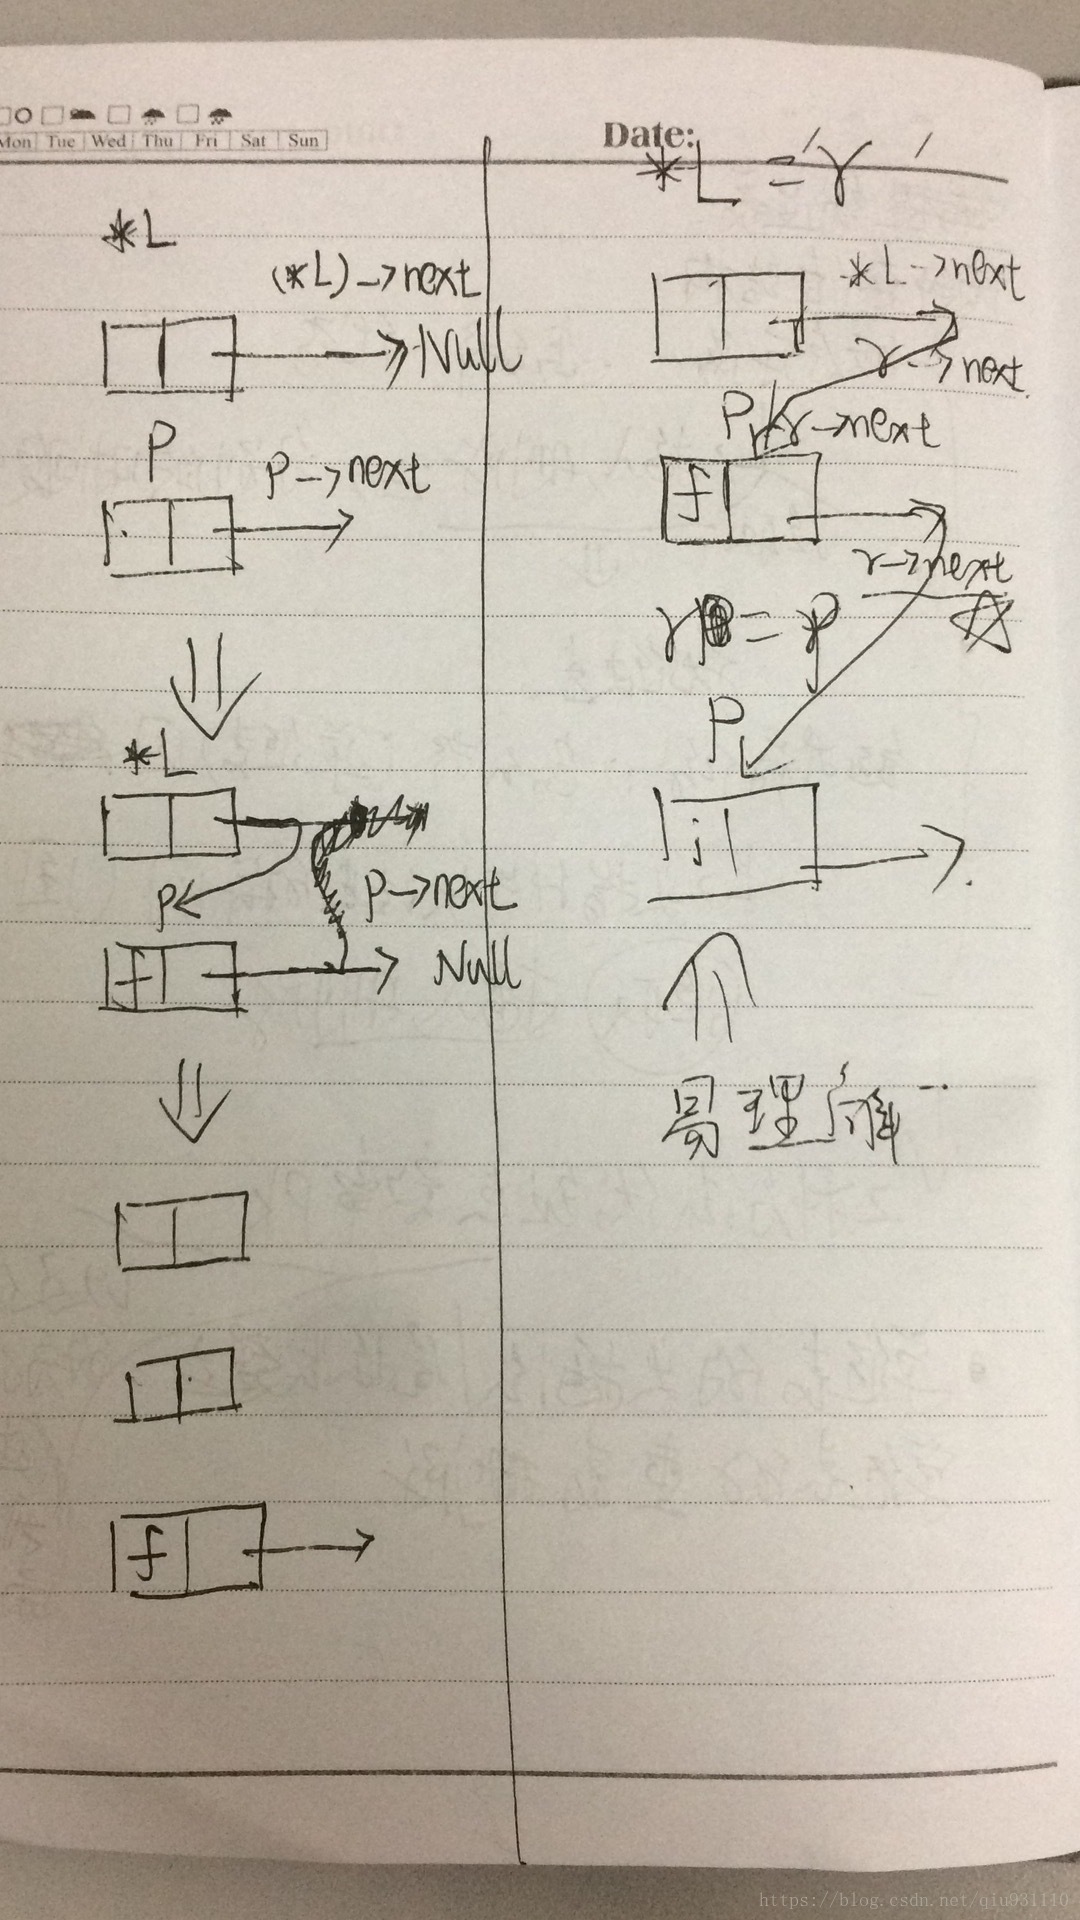 Mon Tue Wed Thu Fri Sat Sun
Date:
*L
(*L)->next
Null
P
P->next
*L
P
P->next
f
Null
f
*L = 'r'
*L->next
r->next
P
r->next
f
r->next
r = P
P
i
易理解
https://blog.csdn.net/qiu931110